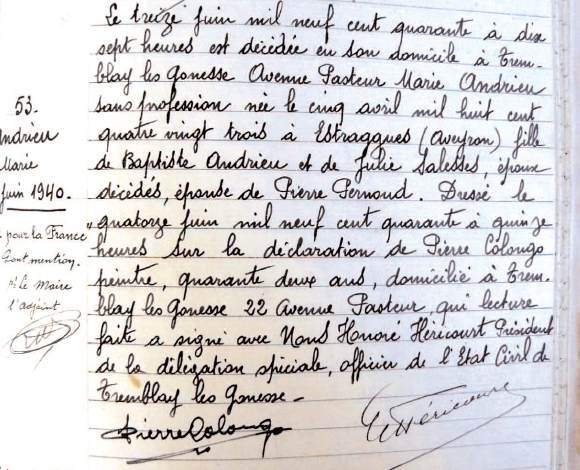 Le treize juin mil neuf cent quarante à dix
sept heures est décédée en son domicile à Trem-
blay les Gonesse Avenue Pasteur Marie Andrieu
sans profession née le cinq avril mil huit cent
quatre vingt trois à Estraggues (Aveyron) fille
de Baptiste Andrieu et de Julie Salesses, époux
décédés, épouse de Pierre Pernoud. Dressé le
quatorze juin mil neuf cent quarante à quinze
heures sur la déclaration de Pierre Colongo
peintre, quarante deux ans, domicilié à Trem-
blay les Gonesse 22 Avenue Pasteur, qui lecture
faite a signé avec Nous Honoré Héricourt Président
de la délégation spéciale, officier de l'Etat Civil de
Tremblay les Gonesse -
Pierre Colongo
Héricourt
53.
ndrieu
Marie
juin 1940.
pour la France"
Dont mention.
le Maire
l'adjoint